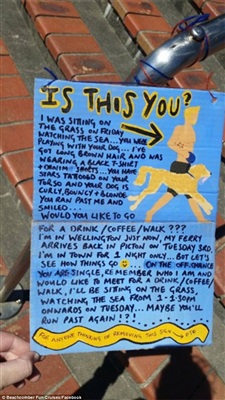 © Beachcomber Fun Cruises Facebook
IS THIS YOU?
I WAS SITTING ON
THE GRASS ON FRIDAY
WATCHING THE SEA... YOU WERE
PLAYING WITH YOUR DOG... I'VE
GOT LONG BROWN HAIR AND WAS
WEARING A BLACK T-SHIRT
+ DENIM SHORTS... YOU HAVE
STARS TATTOOED ON YOUR
TORSO AND YOUR DOG IS
CURLY, BOUNCY + BLONDE.
YOU RAN PAST ME AND
SMILED....
WOULD YOU LIKE TO GO
FOR A DRINK / COFFEE / WALK ???
I'M IN WELLINGTON JUST NOW, MY FERRY
ARRIVES BACK IN PICTON ON TUESDAY 3RD.
I'M IN TOWN FOR 1 NIGHT ONLY... BUT LET'S
SEE HOW THINGS GO ... ON THE OFF-CHANCE
YOU ARE SINGLE, REMEMBER WHO I AM AND
WOULD LIKE TO MEET FOR A DRINK / COFFEE/
WALK, I'LL BE SITTING ON THE GRASS,
WATCHING THE SEA FROM 1-1:30PM
ONWARDS ON TUESDAY... MAYBE YOU'LL
RUN PAST AGAIN !?!....
FOR ANYONE THINKING OF REMOVING THIS SIGN
© Beachcomber Fun Cruises Facebook